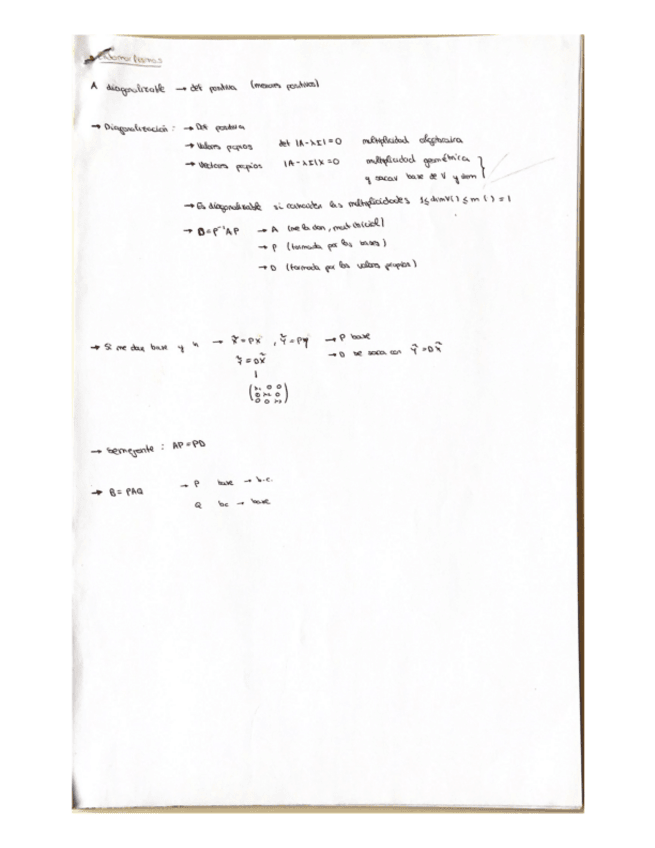 Endomorfismos
A diagonalizable → det positiva (menores positivos)
→ Diagonalización : → Det positiva
→ Valores propios det |A-λI|=0 multiplicidad algebraica
→ Vectores propios |A-λI|X=0 multiplicidad geométrica
y sacar base de V y dim
→ Es diagonalizable si coinciden las multiplicidades 1≤dimV( )≤m( )=1
→ D=P⁻¹AP → A (me la dan, mat inicial)
→ P (formada por las bases)
→ D (formada por los valores propios)
→ Si me dan base y → X̃=PX , Ỹ=PY → P base
Ỹ=DX̃ → D se saca con Ỹ=DX̃
→ Semejante : AP=PD
→ B=PAQ → P base → b.c.
Q bc → base